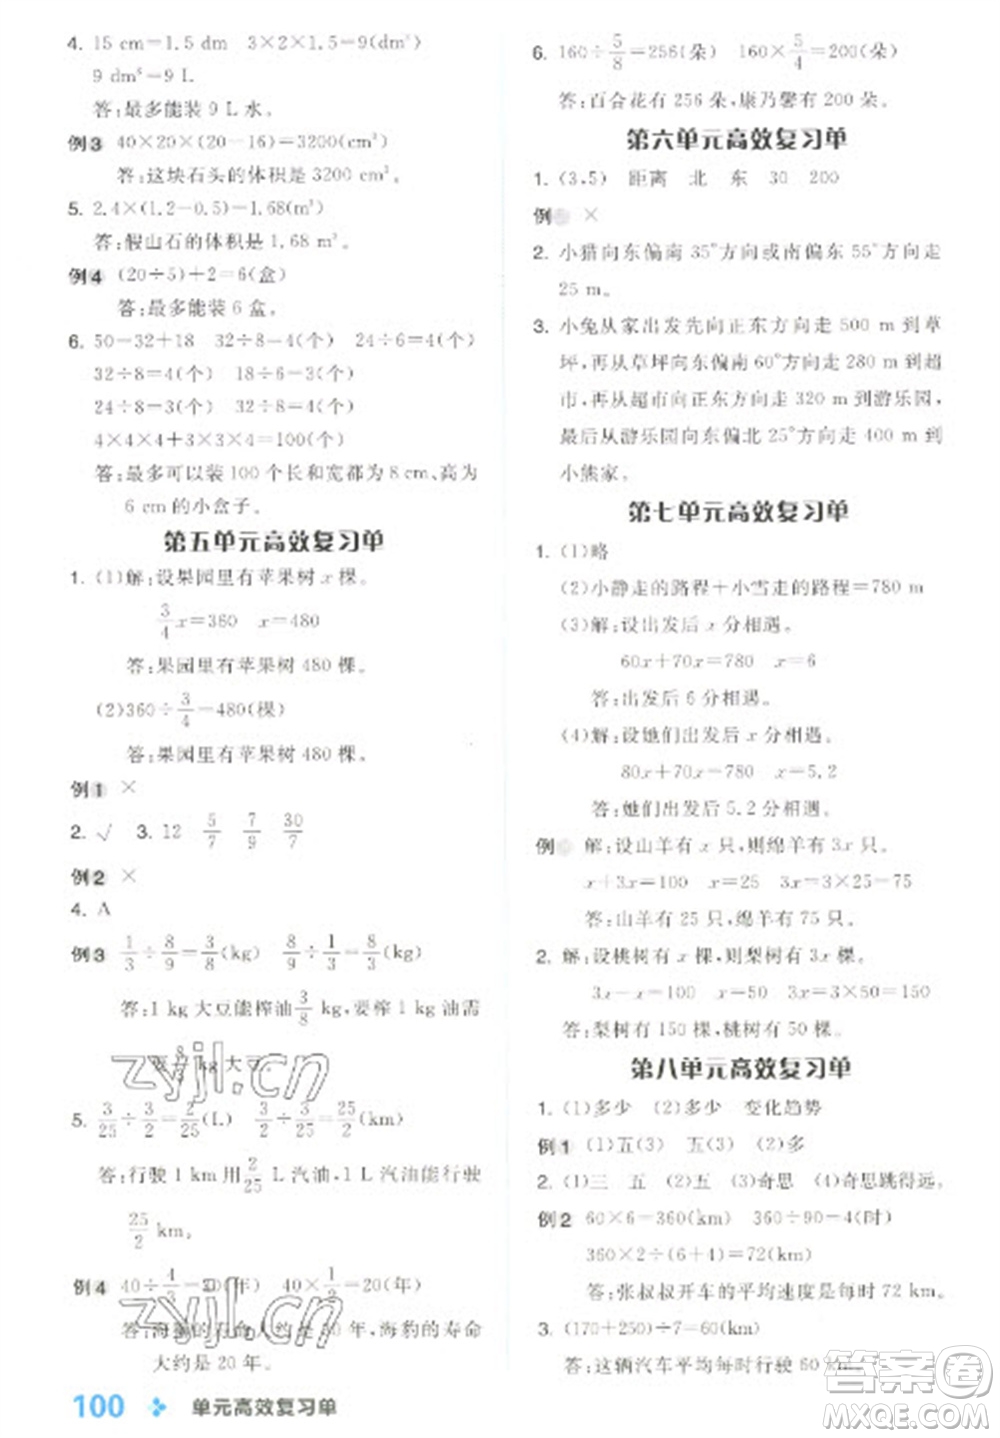 4. 15 cm=1.5 dm 3×2×1.5=9(dm³)
9 dm³=9 L
答:最多能装 9 L 水。
例3 40×20×(20-16)=3200(cm³)
答:这块石头的体积是 3200 cm³。
5. 2.4×(1.2-0.5)=1.68(m³)
答:假山石的体积是 1.68 m³。
例4 (20÷5)+2=6(盒)
答:最多能装 6 盒。
6. 50=32+18 32÷8=4(个) 24÷6=4(个)
32÷8=4(个) 18÷6=3(个)
24÷8=3(个) 32÷8=4(个)
4×4×4+3×3×4=100(个)
答:最多可以装 100 个长和宽都为 8 cm,高为
6 cm 的小盒子。
第五单元高效复习单
1. (1)解:设果园里有苹果树 x 棵。
3/4x=360 x=480
答:果园里有苹果树 480 棵。
(2)360÷3/4=480(棵)
答:果园里有苹果树 480 棵。
例1 ×
2. √ 3. 12 5/7 7/9 30/7
例2 ×
4. A
例3 1/3÷8/9=3/8(kg) 8/9÷1/3=8/3(kg)
答:1 kg 大豆能榨油 3/8 kg,要榨 1 kg 油需
要 8/3 kg 大豆。
5. 3/25÷3/2=2/25(L) 3/2÷3/25=25/2(km)
答:行驶 1 km 用 2/25 L 汽油,1 L 汽油能行驶
25/2 km。
例4 40÷4/3=30(年) 40×1/2=20(年)
答:海狮的寿命大约是 30 年,海豹的寿命
大约是 20 年。
100 单元高效复习单
6. 160÷5/8=256(朵) 160×5/4=200(朵)
答:百合花有 256 朵,康乃馨有 200 朵。
第六单元高效复习单
1. (3,5) 距离 北 东 30 200
例 ×
2. 小猎向东偏南 35°方向或南偏东 55°方向走
25 m。
3. 小兔从家出发先向正东方向走 500 m 到草
坪,再从草坪向东偏南 60°方向走 280 m 到超
市,再从超市向正东方向走 320 m 到游乐园,
最后从游乐园向东偏北 25°方向走 400 m 到
小熊家。
第七单元高效复习单
1. (1)略
(2)小静走的路程+小雪走的路程=780 m
(3)解:设出发后 x 分相遇。
60x+70x=780 x=6
答:出发后 6 分相遇。
(4)解:设她们出发后 x 分相遇。
80x+70x=780 x=5.2
答:她们出发后 5.2 分相遇。
例 解:设山羊有 x 只,则绵羊有 3x 只。
x+3x=100 x=25 3x=3×25=75
答:山羊有 25 只,绵羊有 75 只。
2. 解:设桃树有 x 棵,则梨树有 3x 棵。
3x-x=100 x=50 3x=3×50=150
答:梨树有 150 棵,桃树有 50 棵。
第八单元高效复习单
1. (1)多少 (2)多少 变化趋势
例1 (1)五(3) 五(3) (2)多
2. (1)三 五 (2)五 (3)奇思 (4)奇思跳得远。
例2 60×6=360(km) 360÷90=4(时)
360×2÷(6+4)=72(km)
答:张叔叔开车的平均速度是每时 72 km。
3. (170+250)÷7=60(km)
答:这辆汽车平均每时行驶 60 km。
zyjl.cn
zyjl.cn
答案圈
MXQE.COM